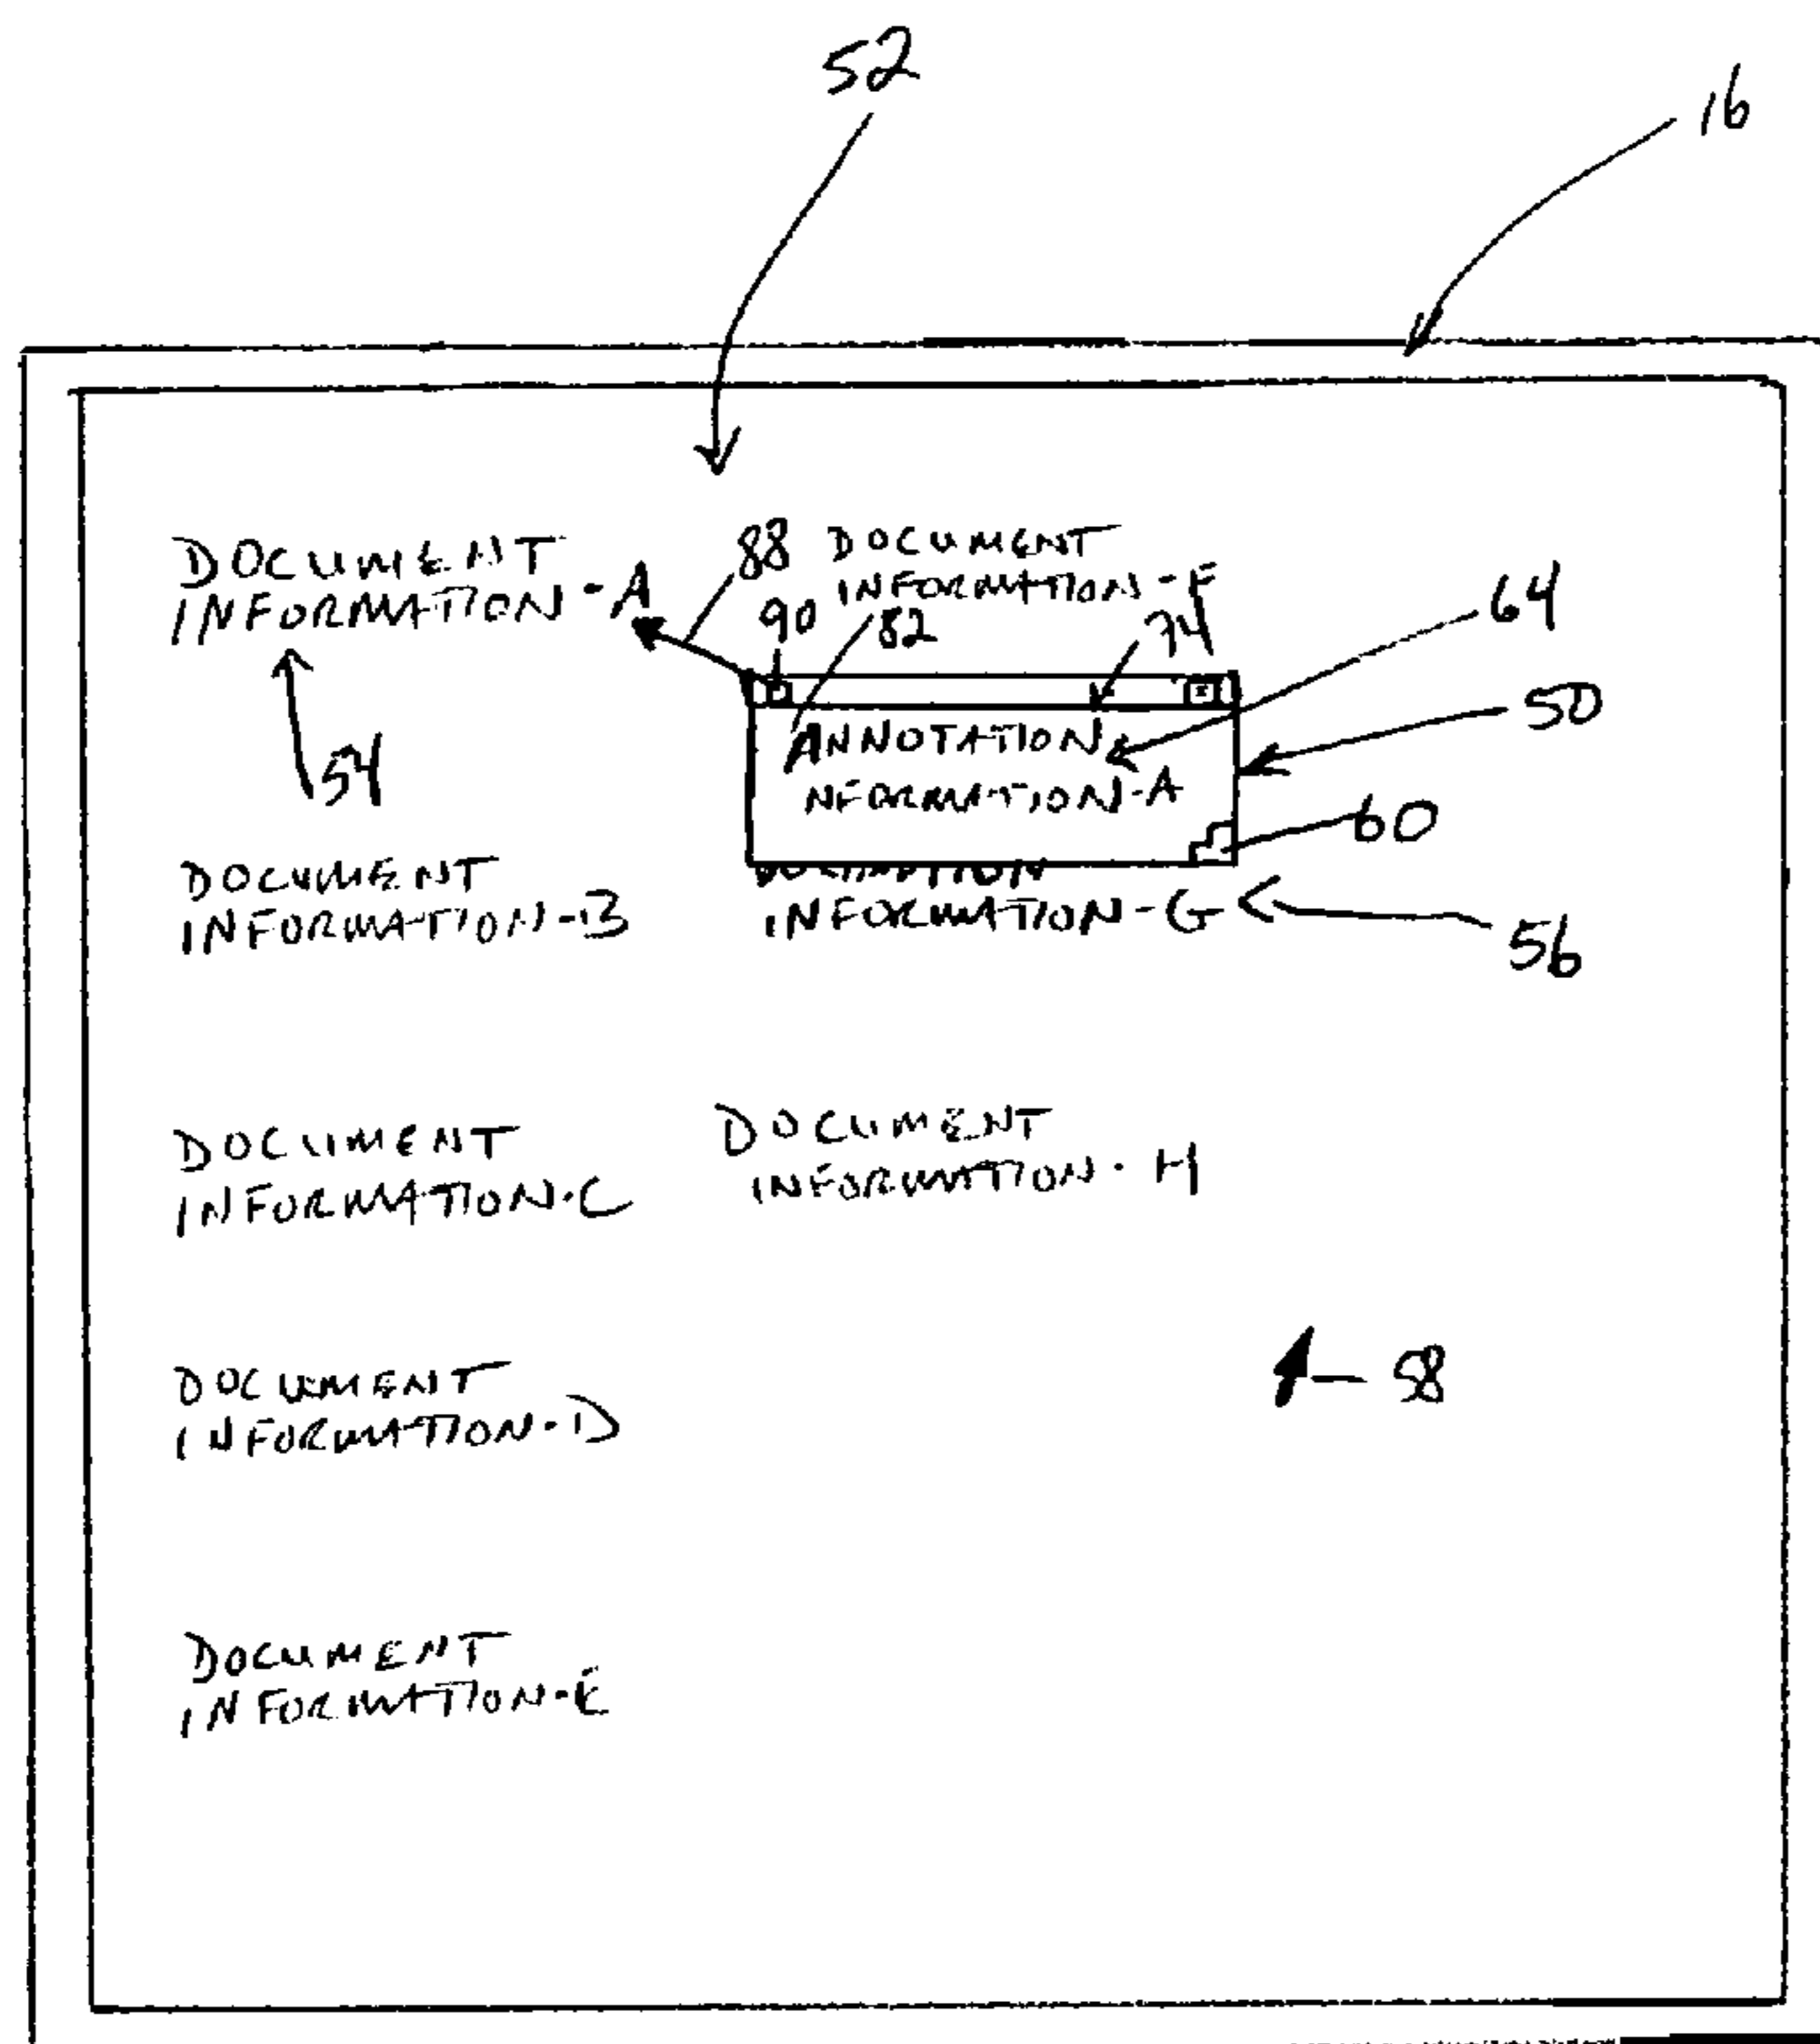 52
16
DOCUMENT
INFORMATION-A
54
88
DOCUMENT
INFORMATION-F
90
82
74
64
50
ANNOTATION
NFORMATION-A
60
DOCUMENT
INFORMATION-B
INFORMATION-G
56
DOCUMENT
INFORMATION-C
DOCUMENT
INFORMATION-H
DOCUMENT
INFORMATION-D
58
DOCUMENT
INFORMATION-E